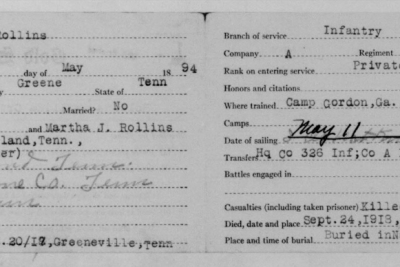 Rollins
day of May 18 94
Greene State of Tenn
Married? No
and Martha J. Rollins
land, Tenn.,
er)
Co. Tenn
.20/17, Greeneville, Tenn
Branch of service Infantry
Company A Regiment
Rank on entering service Private
Honors and citations
Where trained Camp Gordon, Ga.
Camps
Date of sailing May 11
Transfers Hq Co 326 Inf; Co A
Battles engaged in
Casualties (including taken prisoner) Kille
Died, date and place Sept. 24, 1918,
Place and time of burial Buried in N